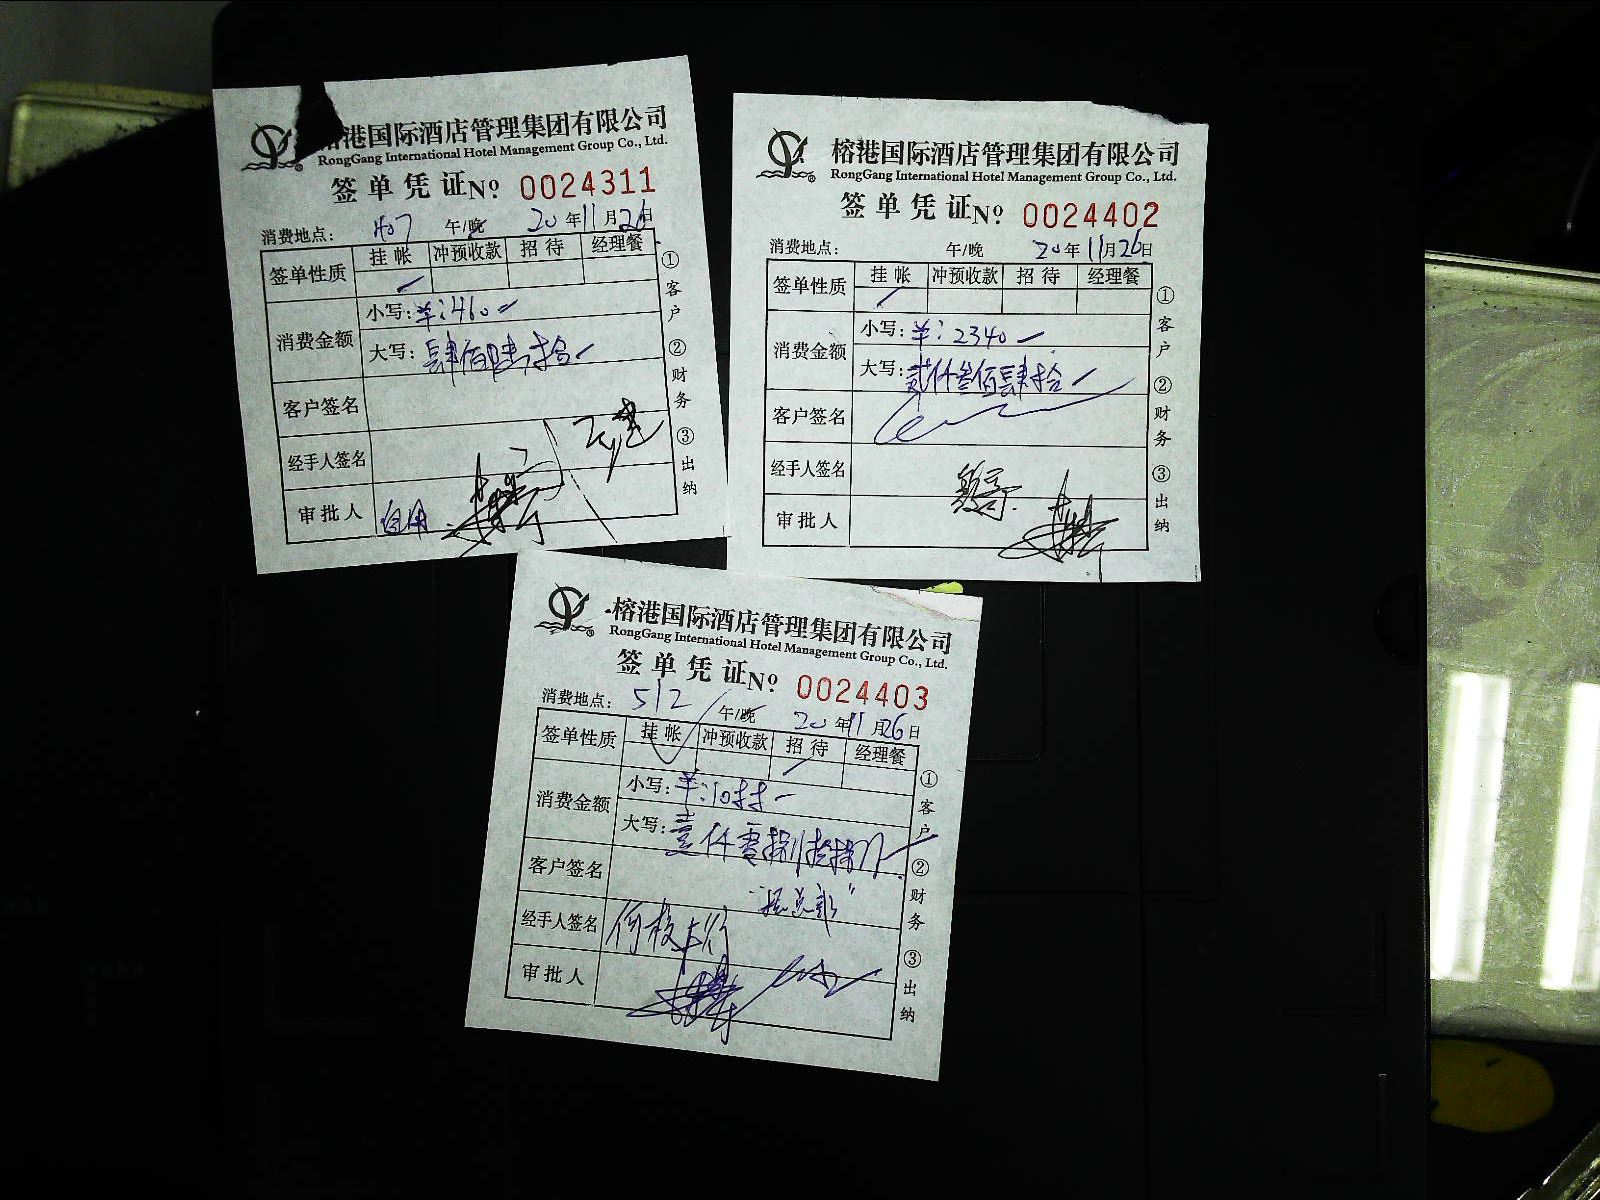 榕港国际酒店管理集团有限公司
RongGang International Hotel Management Group Co., Ltd.
签单凭证№ 0024311
消费地点: 407 午/晚 20年11月26日
签单性质 挂帐 冲预收款 招待 经理餐
消费金额 小写: ¥:460
大写: 肆佰陆拾
客户签名
经手人签名
审批人
①客户 ②财务 ③出纳
榕港国际酒店管理集团有限公司
RongGang International Hotel Management Group Co., Ltd.
签单凭证№ 0024402
消费地点: 午/晚 20年11月26日
签单性质 挂帐 冲预收款 招待 经理餐
消费金额 小写: ¥:2340
大写: 贰仟叁佰肆拾
客户签名
经手人签名
审批人
①客户 ②财务 ③出纳
榕港国际酒店管理集团有限公司
RongGang International Hotel Management Group Co., Ltd.
签单凭证№ 0024403
消费地点: 512 午/晚 20年11月26日
签单性质 挂帐 冲预收款 招待 经理餐
消费金额 小写: ¥:1088
大写: 壹仟零捌拾捌
客户签名
经手人签名
审批人
①客户 ②财务 ③出纳